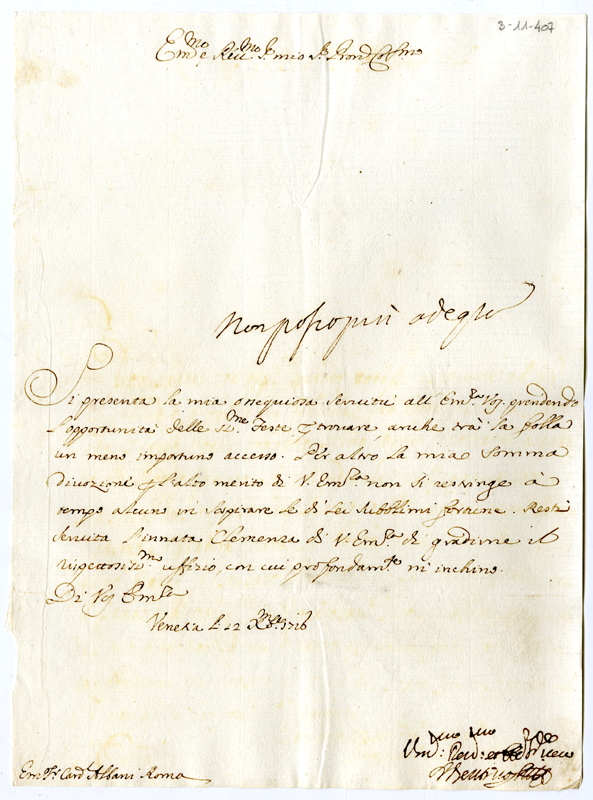 3-11-407
Em.mo e Rev.mo S.r mio S.r Pron Col.mo
Non posso più
Si presenta la mia ossequiosa servitù all Em.za Vos. prendendo
l'opportunità delle S.me Feste trovare, anche trà la folla
un meno importuno accesso. Per altro la mia somma
divozione all'alto merito di V. Em.za non si restringe à
tempo alcuno in sospirare le di Lei sublimi fortune. Resti
servita l'innata Clemenza di V. Em.za di gradirne il
rispettosiss.mo uffizio, con cui profondam.te m'inchino.
Di Vos Em.za
Venezia li 12 Xbre 1716
Em. Sr. Card. Albani Roma